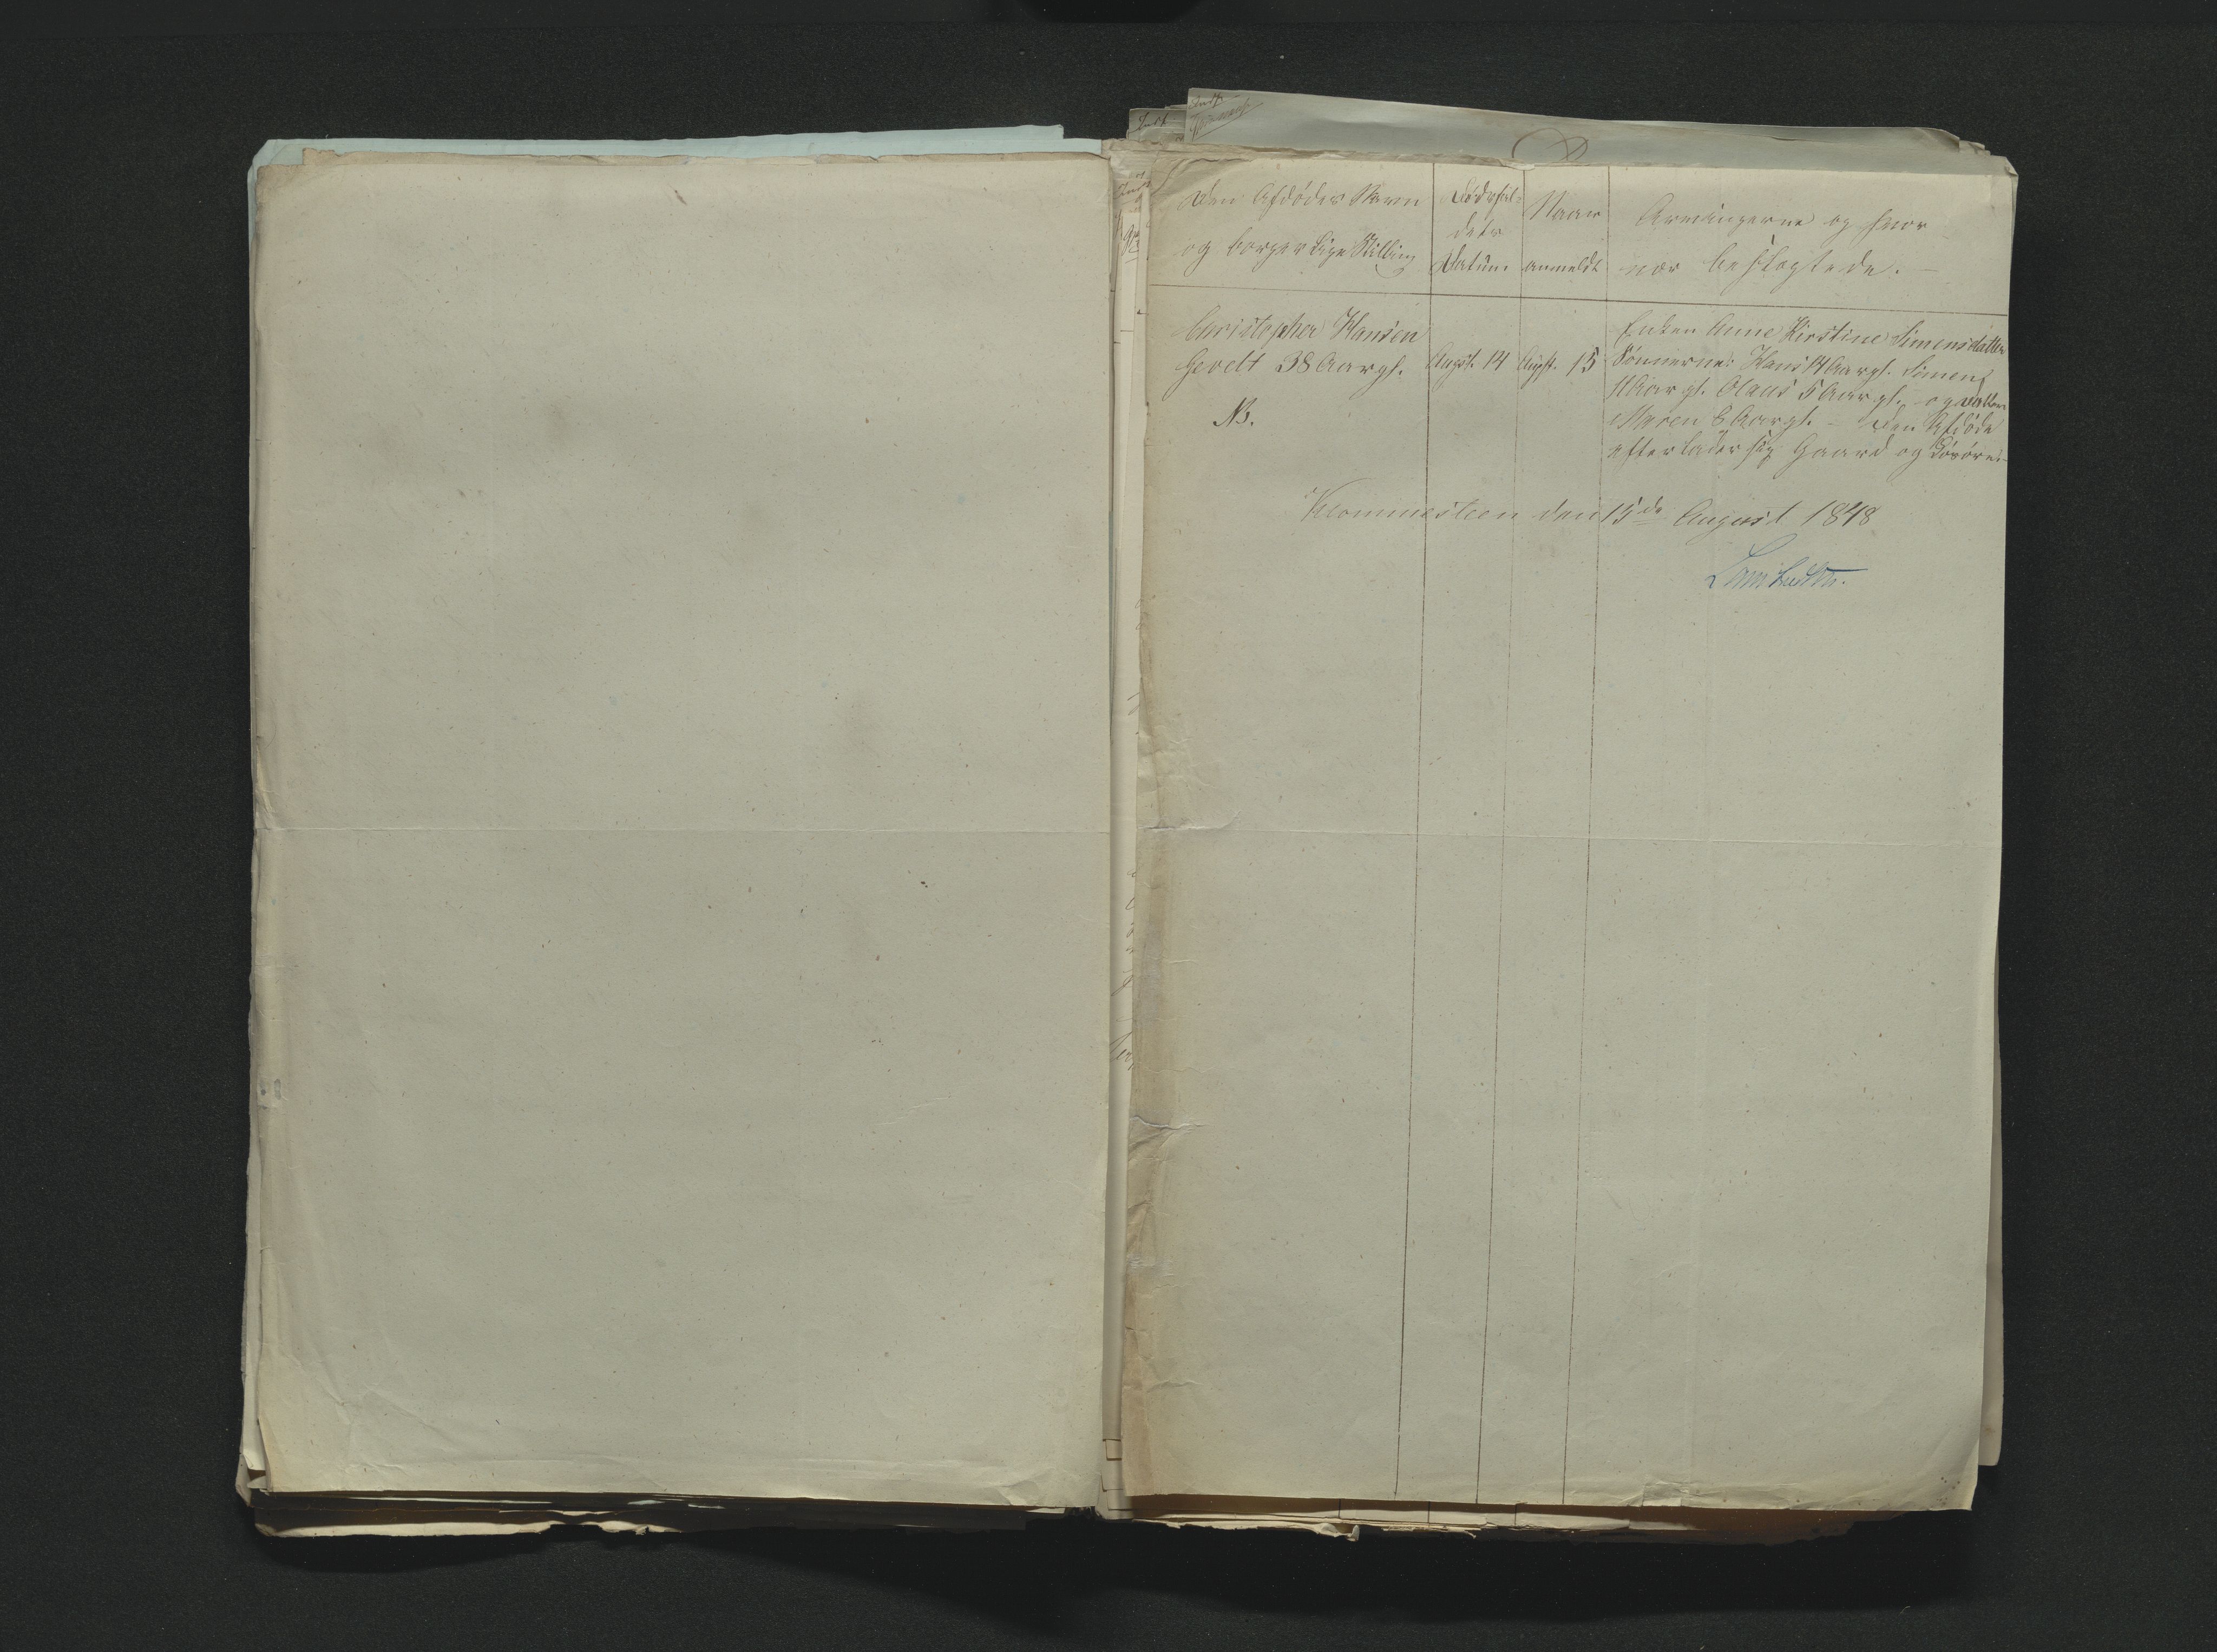 Den Afdødes Navn
og borgerlige Stilling
Dødsfal-
dets
Datum.
Naar
anmeldt
Arvingerne og hvor
nær beslægtede. —
Christopher Hansen
Gevelt 38 Aar gl.
NB.
Augst. 14
Augst. 15
Enken Anne Kirstine Simensdatter
Sønnerne: Hans 14 Aar gl. Simen
11 Aar gl. Olaus 5 Aar gl. og Datter
Maren 8 Aar gl. – Den Afdøde
efterlader sig Gaard og Løsøre.
Klommesteen den 15de August 1848